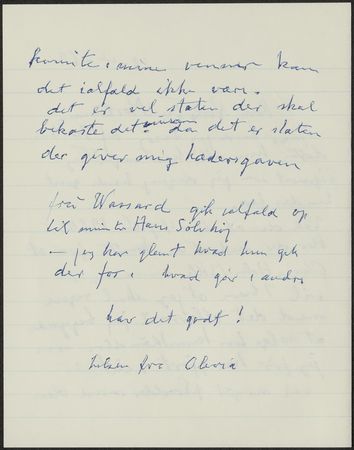 komite, mine venner kan
det ialfald ikke være.
det er vel staten der skal
bekoste det? da det er staten
der giver mig hædersgaven
frú Wassard gik ialfald op
til minister Hans Sölvhöj
– jeg har glemt hvad hun gik
der for, hvad gør i andre
hav det godt!
hilsen fra Olivia